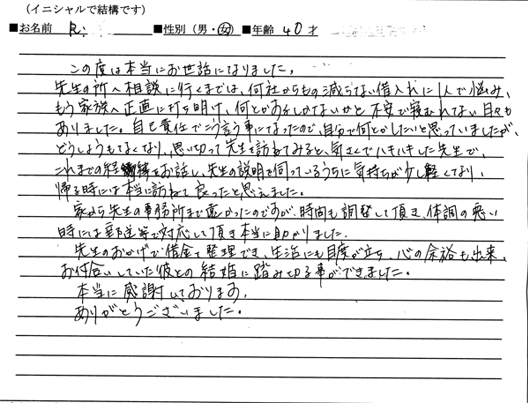 (イニシャルで結構です)
■お名前 R. ■性別(男・女)■年齢 40才
この度は本当にお世話になりました。
先生の所へ相談に行くまでは、何社からもの減らない借入れに1人で悩み、
もう家族へ正直に打ち明け、何とか しかないかと不安で寝むれない日々も
ありました。自己責任でこう言う事になったので、自分で何とかしたいと思っていましたが、
どうしようもなくなり、思い切って先生を訪ねてみると、気さくでハキハキした先生で、
これまでの経緯をお話し、先生の説明を伺っているうちに気持ちが少し軽くなり、
帰る時には本当に訪ねて良かったと思えました。
家から先生の事務所まで遠かったのですが、時間も調整して頂き、体調の悪い
時には郵送等で対応して頂き本当に助かりました。
先生のおかげで借金を整理でき、生活にも目度が立ち、心の余裕も出来、
お付合いしていた彼との結婚に踏み切る事ができました。
本当に感謝しております。
ありがとうございました。